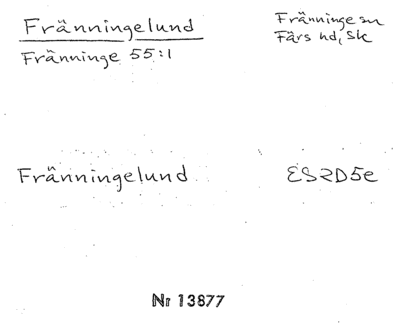 Fränningelund
Fränninge sn
Fränninge 55:1
Färs hd, Sk
Fränningelund
ES2D5e
Nr 13877